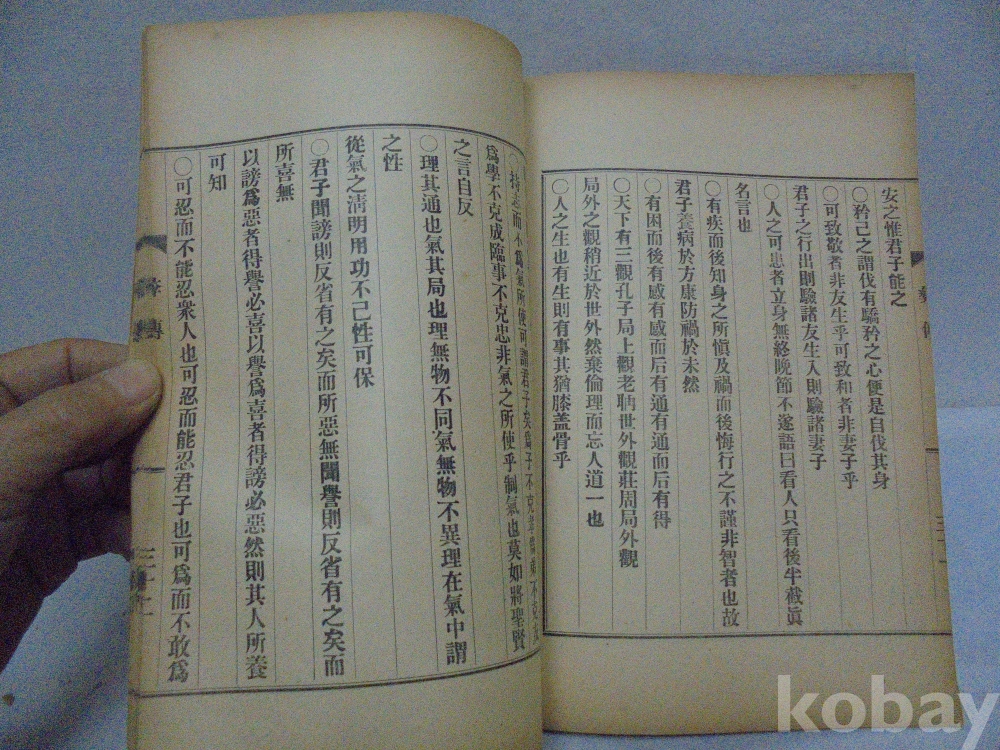 安之惟君子能之
○矜己之謂伐有驕矜之心便是自伐其身
○可致敬者非友生乎可致和者非妻子乎
君子之行出則驗諸友生入則驗諸妻子
○人之可患者立身無終晩節不遂語曰看人只看後半截眞
名言也
○有疾而後知身之所愼及禍而後悔行之不謹非智者也故
君子養病於方康防禍於未然
○有困而後有感有感而后有通有通而后有得
○天下有三觀孔子局上觀老聃世外觀莊周局外觀
局外之觀稍近於世外然棄倫理而忘人道一也
○人之生也有生則有事其猶膝盖骨乎
○持志而不爲氣所使可謂君子矣爲子不克
爲學不克成臨事不克忠非氣之所使乎制氣也莫如將聖賢
之言自反
○理其通也氣其局也理無物不同氣無物不異理在氣中謂
之性
從氣之淸明用功不己性可保
○君子聞謗則反省有之矣而所惡無聞譽則反省有之矣而
所喜無
以謗爲惡者得譽必喜以譽爲喜者得謗必惡然則其人所養
可知
○可忍而不能忍衆人也可忍而能忍君子也可爲而不敢爲
傳
kobay